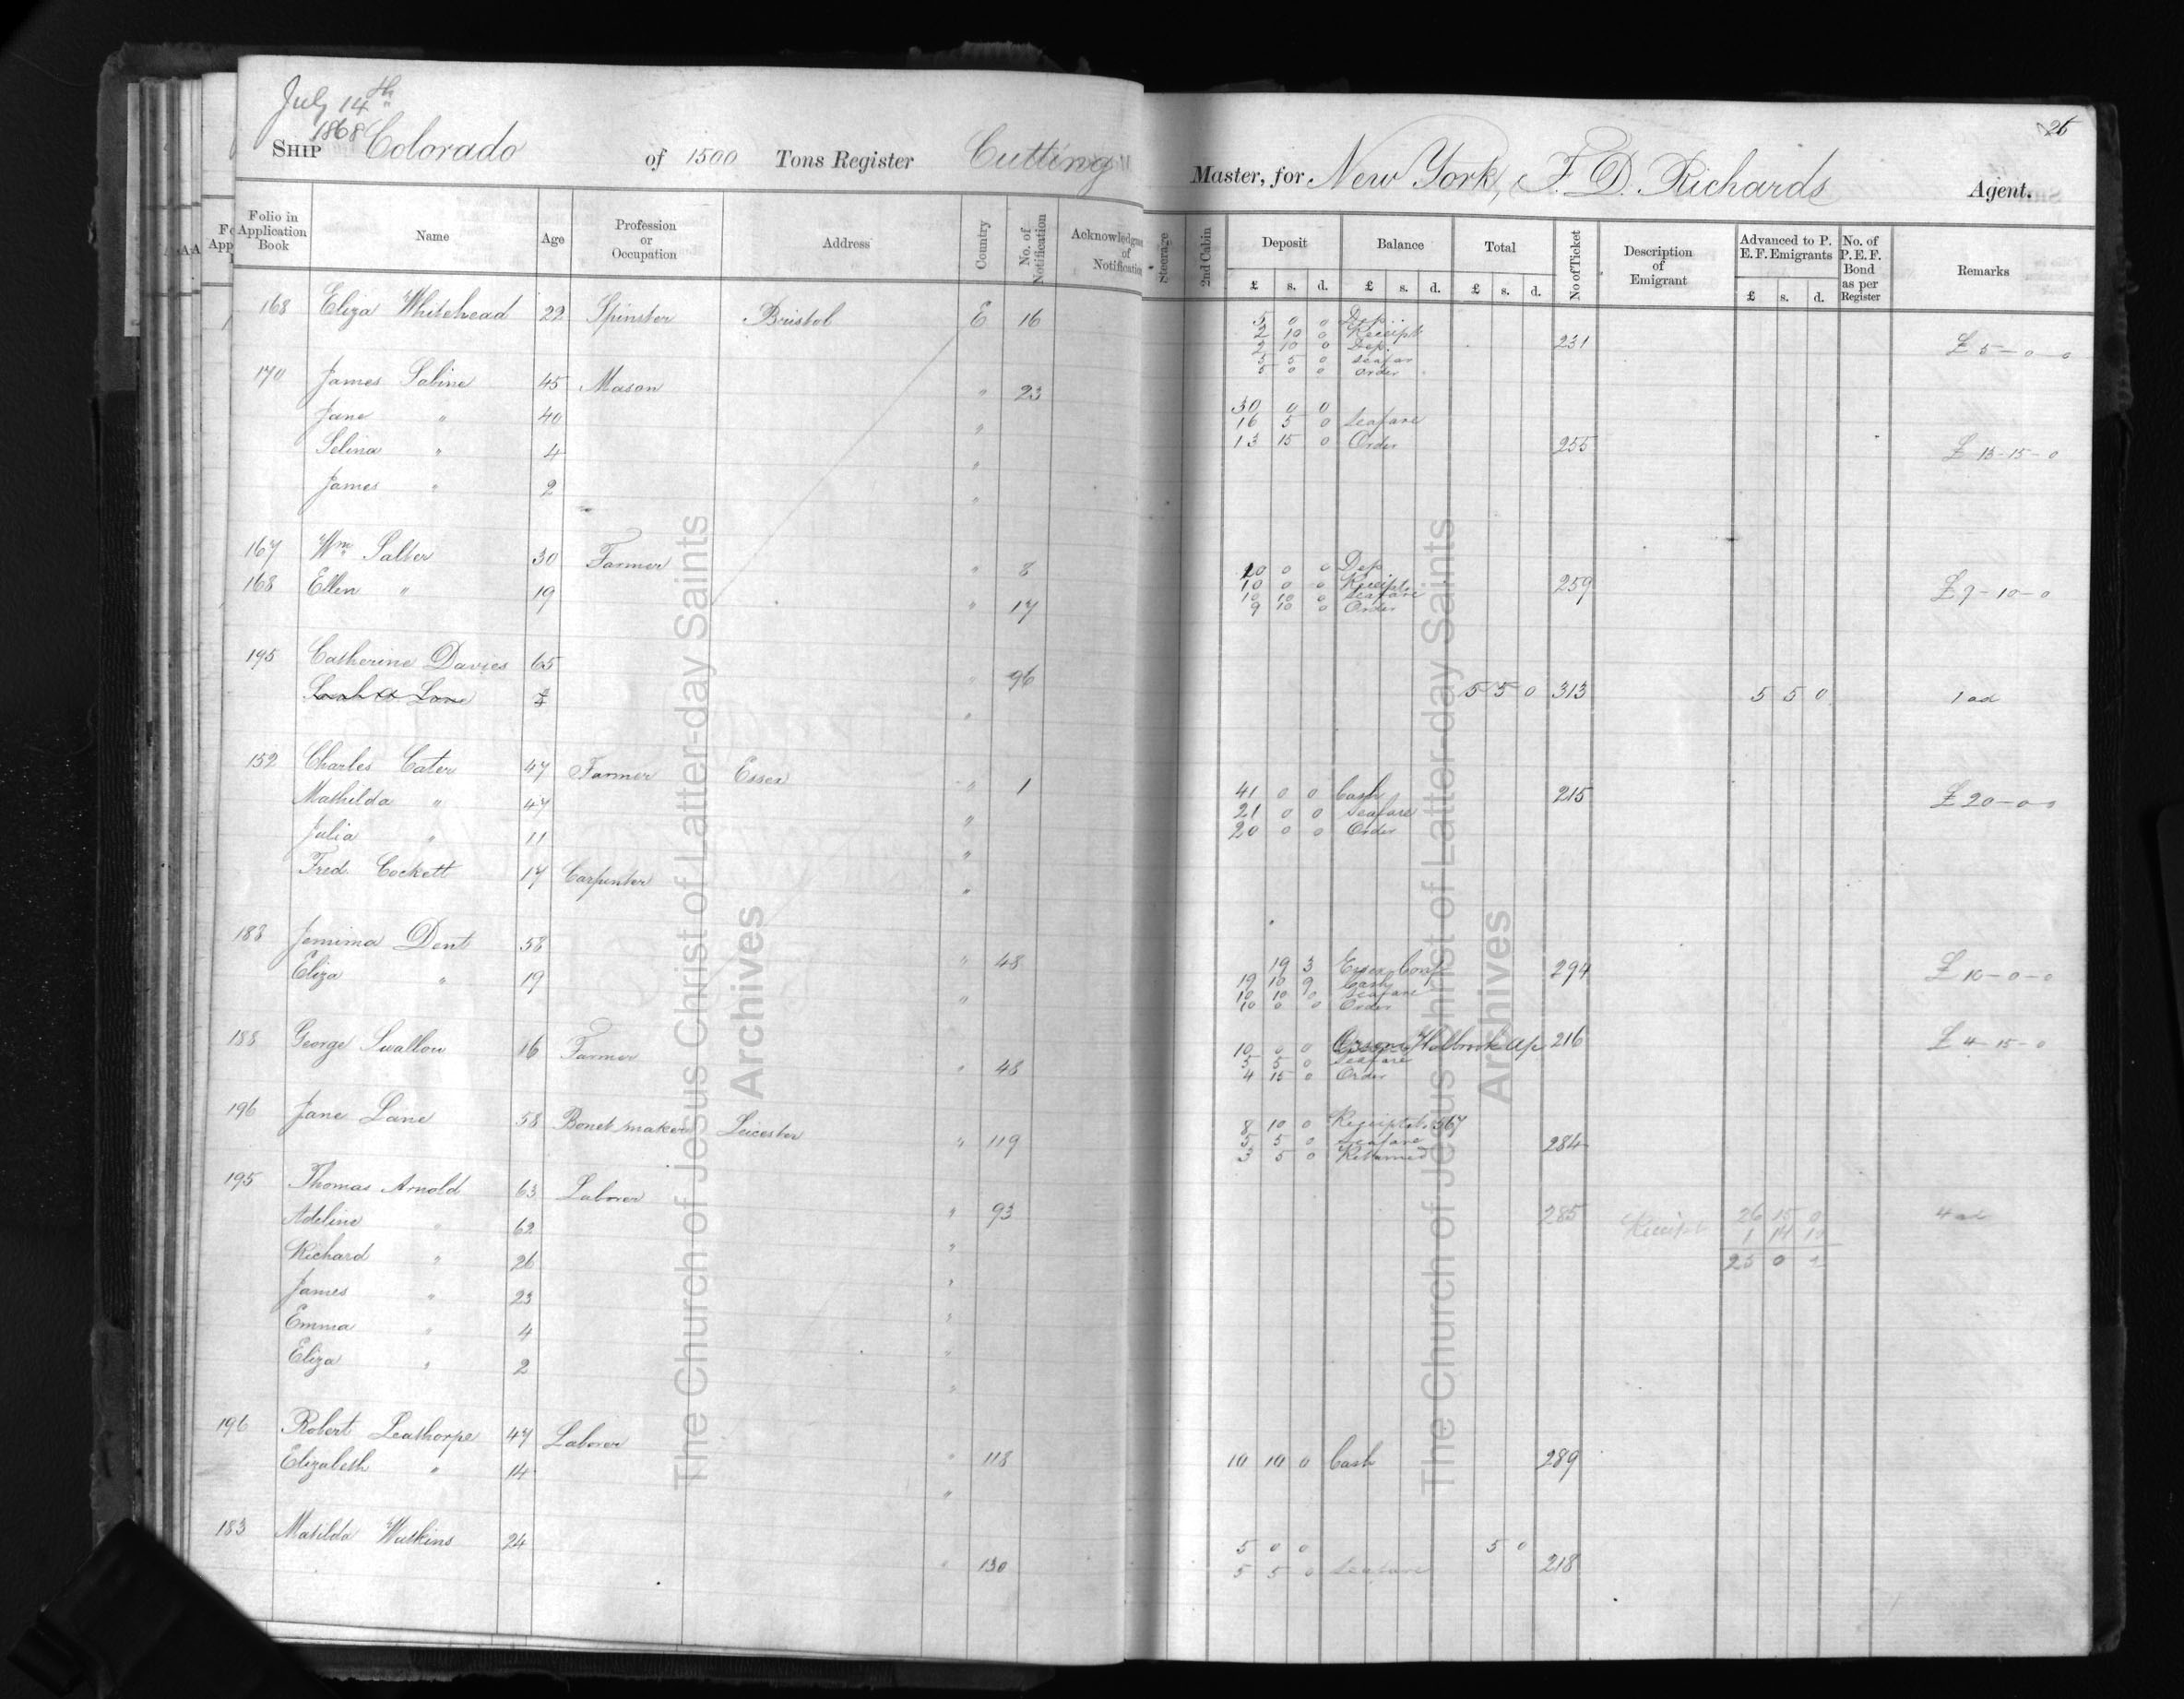 July 14th
1868
SHIP Colorado of 1500 Tons Register Cutting Master, for New York, F. D. Richards Agent.
26
Folio in Application Book | Name | Age | Profession or Occupation | Address | Country | No. of Notification | Acknowledgment of Notification | Steerage | 2nd Cabin | Deposit £ s. d. | Balance £ s. d. | Total £ s. d. | No of Ticket | Description of Emigrant | Advanced to P. E. F. Emigrants £ s. d. | No. of P. E. F. Bond as per Register | Remarks
168 Eliza Whitehead 22 Spinster Bristol E 16
5 0 0 Dep.
2 10 0 Receipt
2 10 0 Dep. 231 £ 5-0-0
5 5 0 Seafare
5 0 0 Order
170 James Sabine 45 Mason " 23
Jane " 40 "
Selina " 4 "
James " 2 "
30 0 0
16 5 0 Seafare
13 15 0 Order 255 £ 13-15-0
167 Wm Salter 30 Farmer " 8
168 Ellen " 19 " 17
20 0 0 Dep
10 0 0 Receipt 259 £ 9-10-0
10 10 0 Seafare
9 10 0 Order
195 Catherine Davies 65 " 96
Lane "
5 5 0 313 5 5 0 1 ad
152 Charles Cater 47 Farmer Essex " 1
Mathilda " 47 "
Julia " 11 "
Fred. Cockett 17 Carpenter "
41 0 0 Cash 215 £ 20-0-0
21 0 0 Seafare
20 0 0 Order
188 Jemima Dent 58 " 48
Eliza " 19 "
19 3 Essex Conf 294 £ 10-0-0
19 10 9 Cash
10 10 0 Seafare
10 0 0 Order
188 George Swallow 16 Farmer " 48
10 0 0 Orson Holbrook 216 £ 4-15-0
5 5 0 Seafare
4 15 0 Order
196 Jane Lane 58 Bonet maker Leicester " 119
8 10 0 Receipt 567
5 5 0 Seafare 284
3 5 0 Returned
195 Thomas Arnold 63 Laborer " 93
Adeline " 62 "
Richard " 26 "
James " 23 "
Emma " 4 "
Eliza " 2 "
285 Receipt 26 15 0 4 ad
1 14 10
25 0 2
196 Robert Leathorpe 47 Laborer " 118
Elizabeth " 14 "
10 10 0 Cash 289
183 Matilda Watkins 24 " 130
5 0 0 5 0
5 5 0 Seafare 218
The Church of Jesus Christ of Latter-day Saints
Archives
The Church of Jesus Christ of Latter-day Saints
Archives